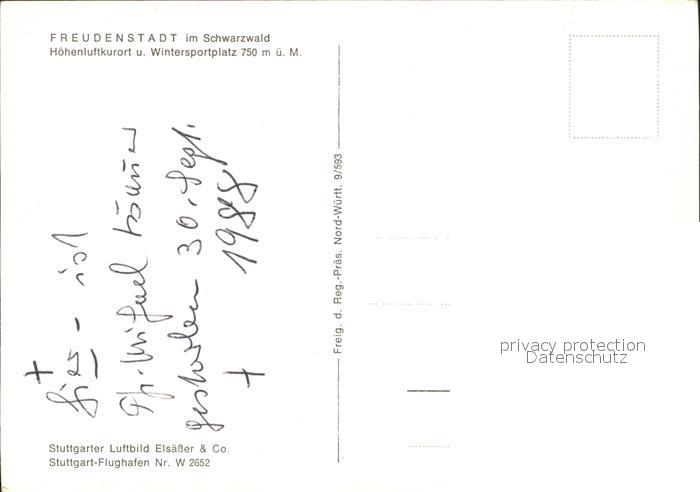 FREUDENSTADT im Schwarzwald
Höhenluftkurort u. Wintersportplatz 750 m ü. M.
+
hier - ist
gestorben 30. Sept.
+ 1988
Freig. d. Reg.-Präs. Nord-Württ. 9/593
privacy protection
Datenschutz
Stuttgarter Luftbild Elsäßer & Co.
Stuttgart-Flughafen Nr. W 2652